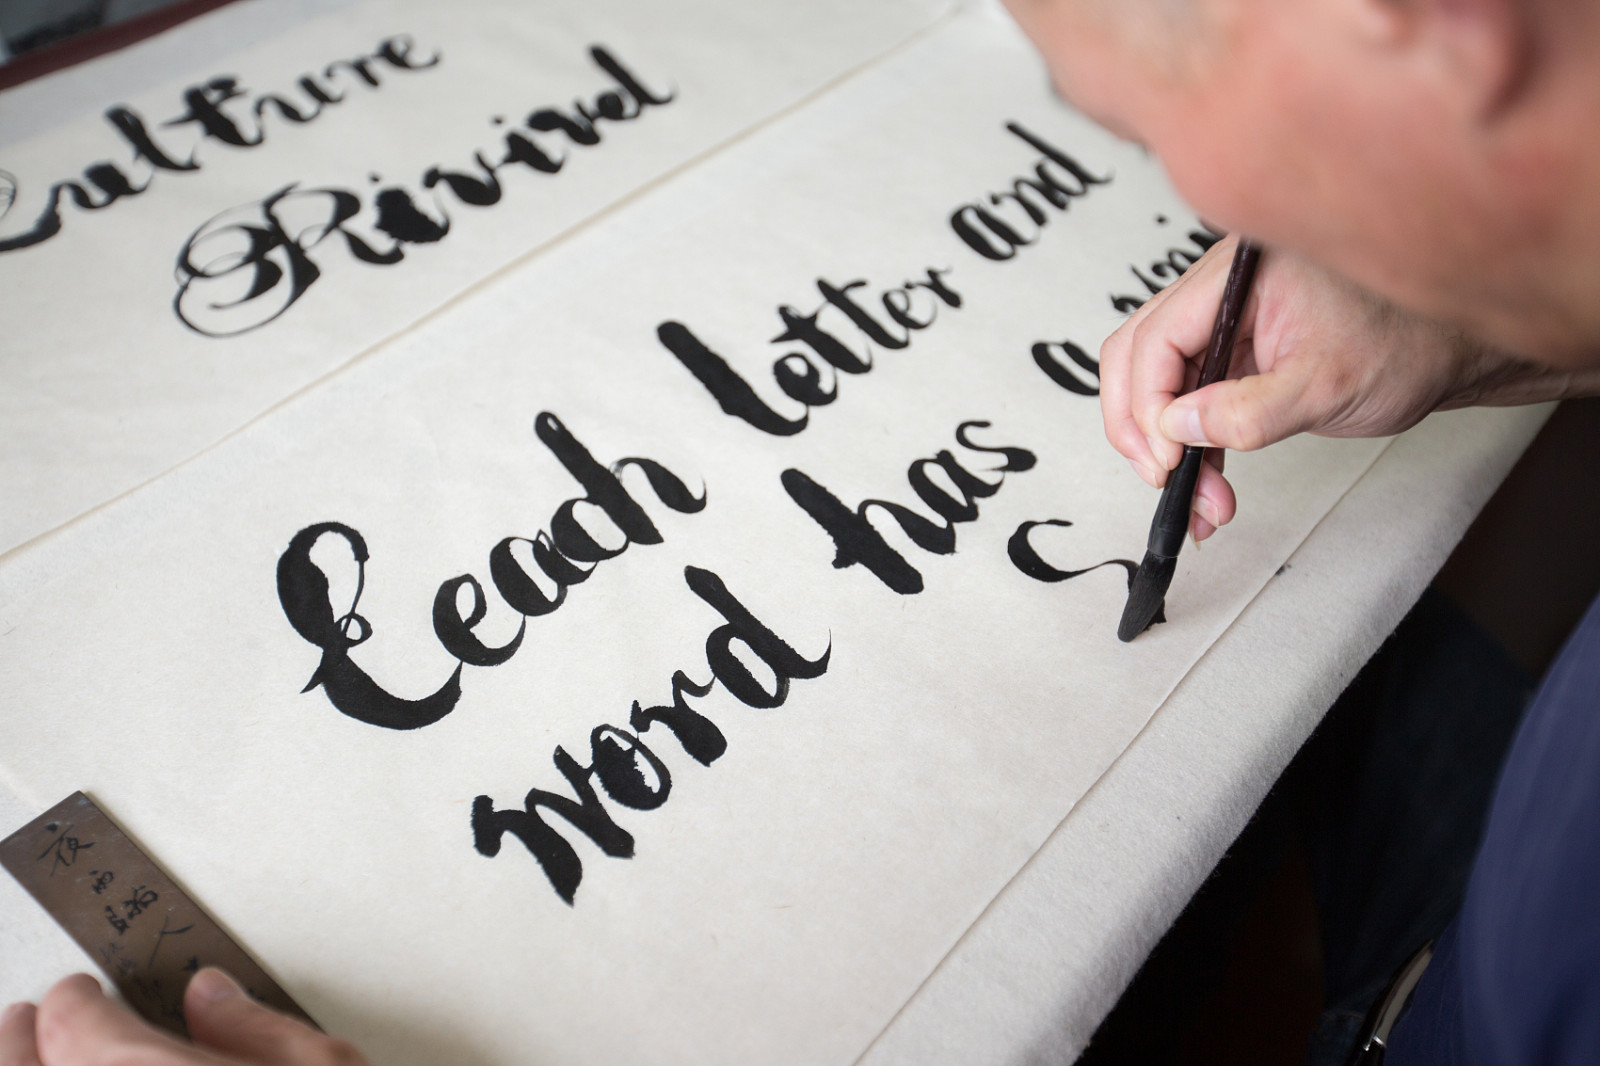 Culture
Rivival
Eeach letter and
word has a
夜雨